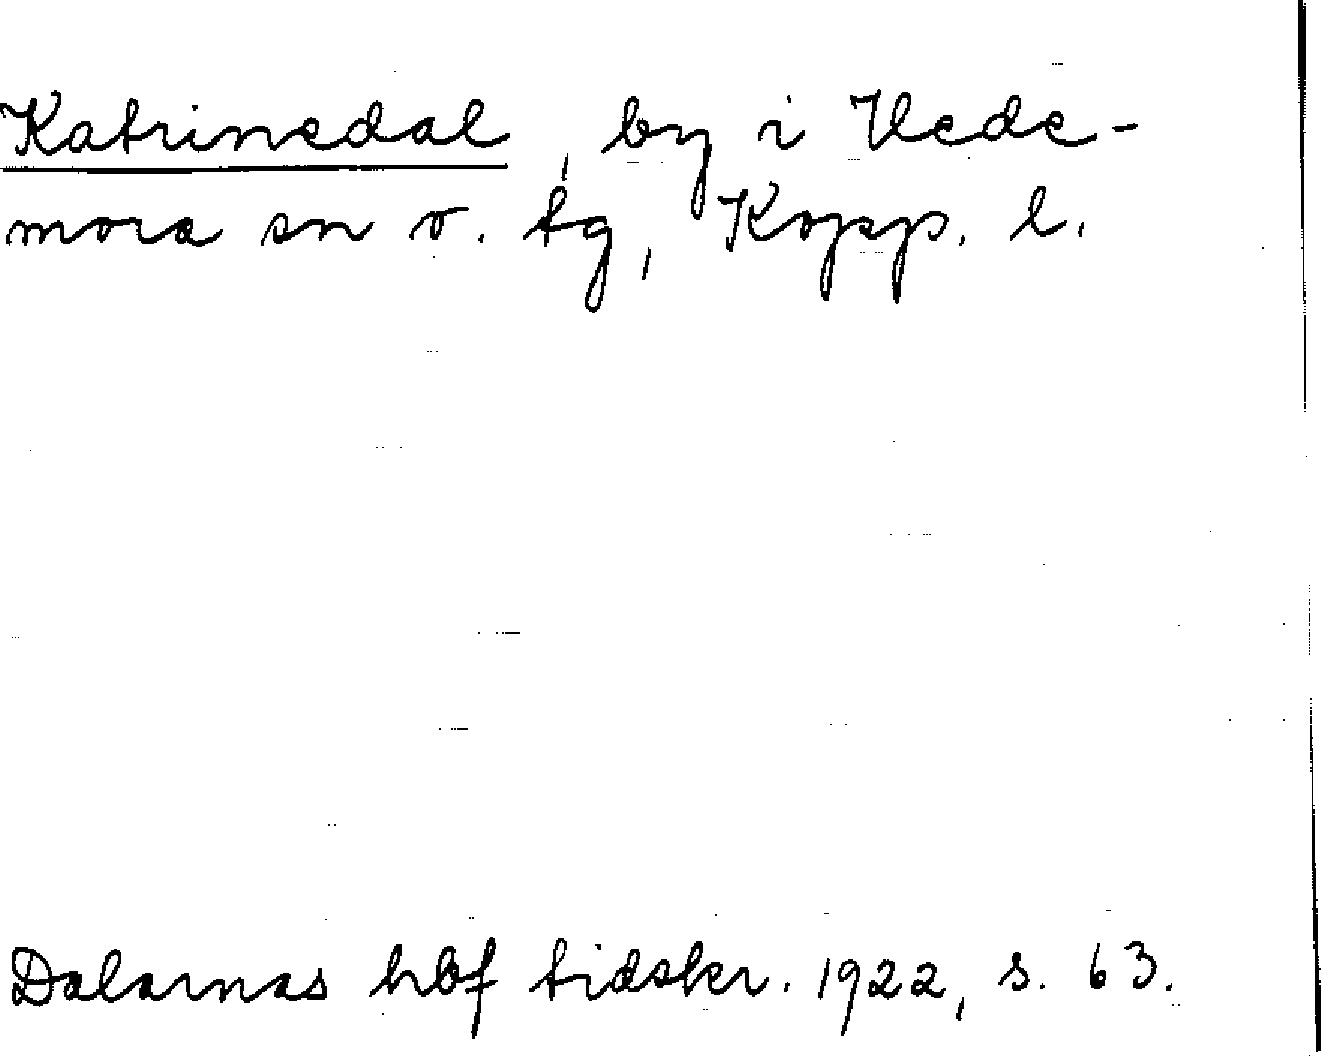 Katrinedal, by i Vede-
mora sn o. tg, Kopp. l.
Dalarnas hbf tidskr. 1922, s. 63.